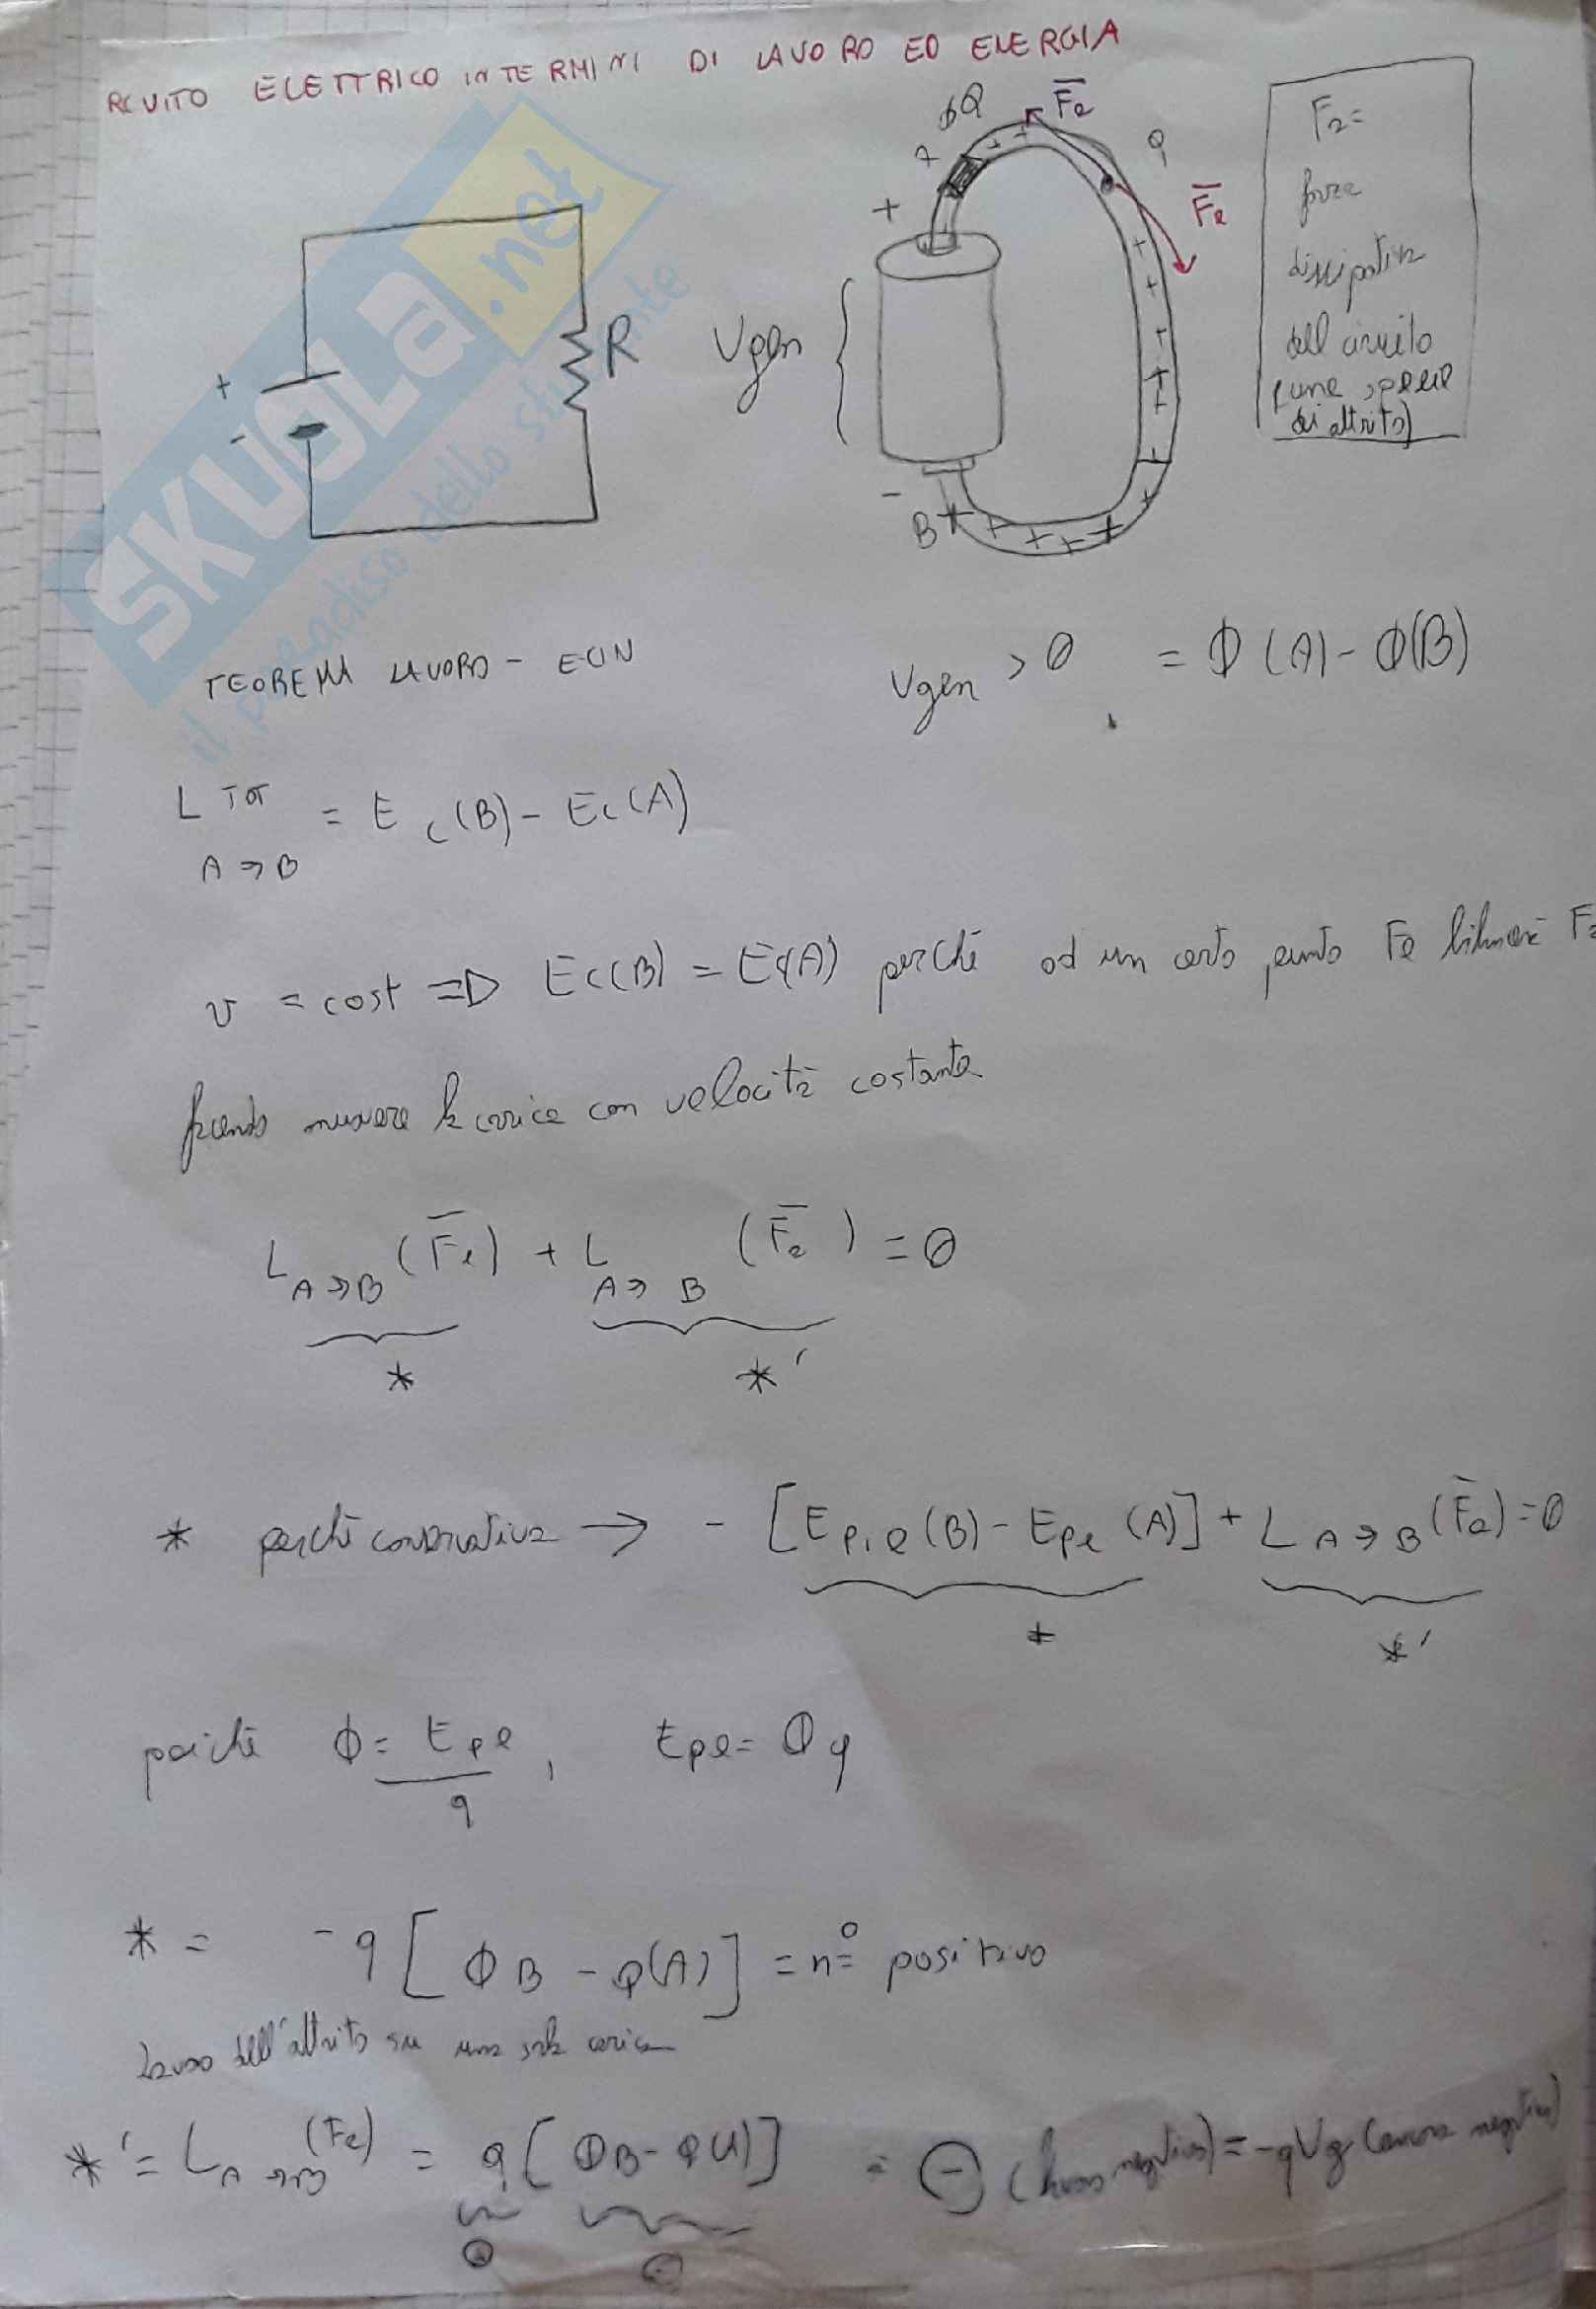 RCUITO ELETTRICO IN TERMINI DI LAVORO ED ENERGIA
SKUOLA.net
il paradiso dello studente
+
-
R
Vgen
+
-
A
δQ
Fa
q
Fe
B
Fa=
forza
dissipativa
del circuito
(una specie
di attrito)
TEOREMA LAVORO - ECIN
Vgen > 0 = Φ(A) - Φ(B)
L TOT A→B = Ec(B) - Ec(A)
v = cost => Ec(B) = Ec(A) perché ad un certo punto Fe bilancia Fa
facendo muovere la carica con velocità costante
L A→B (Fe) + L A→B (Fa) = 0
* *'
* perché conservativa → - [Ep,e(B) - Epe(A)] + L A→B (Fa) = 0
* *'
poiché Φ = Epe / q , Epe = Φq
* = -q [ΦB - Φ(A)] = n° positivo
Lavoro dell'attrito su una sola carica
*' = L A→B (Fe) = q [ΦB - Φ(A)] = ⊖ (lavoro negativo) = -qVg (ancora negativo)